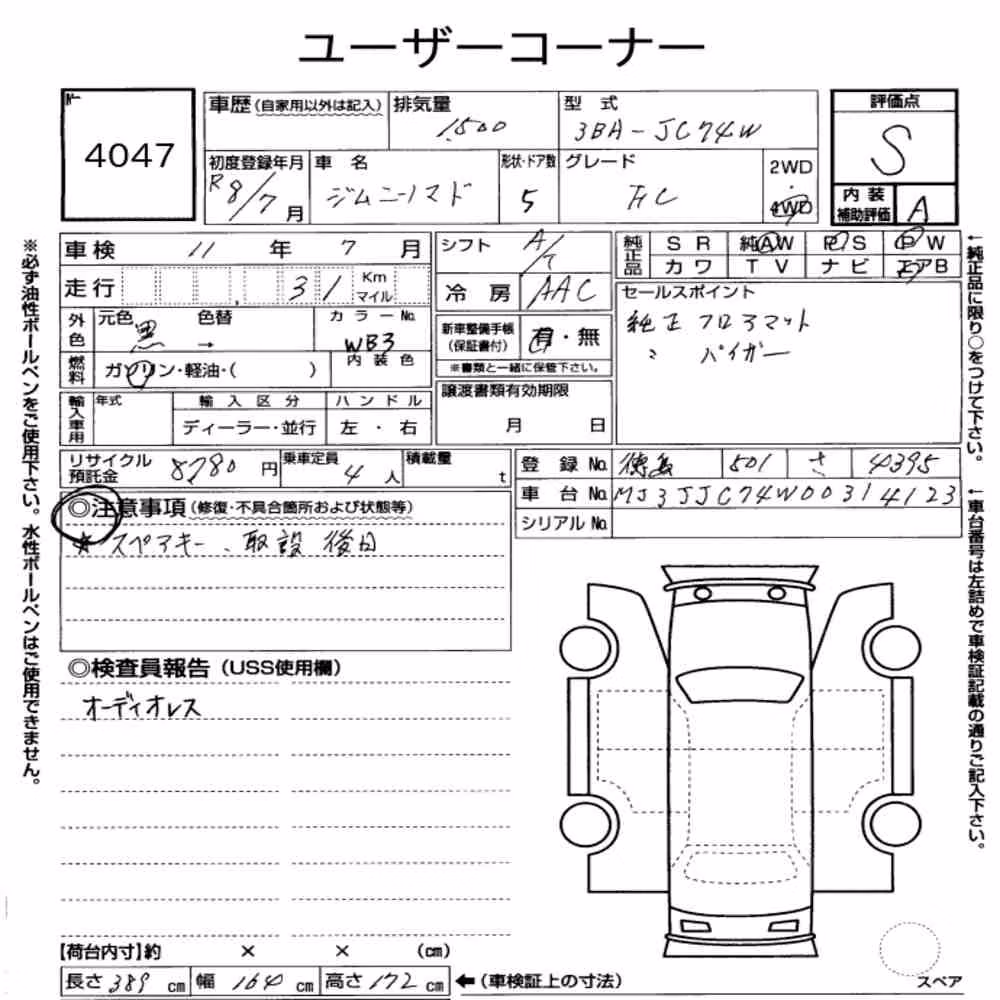 ユーザーコーナー
4047
車歴 (自家用以外は記入)
排気量 1500
型式 3BA-JC74W
評価点 S
初度登録年月 R8/7月
車名 ジムニーノマド
形状・ドア数 5
グレード FC
2WD
4WD
内装補助評価 A
車検 11年7月
シフト A/T
純正品 SR 純AW PS PW
カワ TV ナビ エアB
走行 31 Km マイル
冷房 AAC
セールスポイント
純正フロアマット
〃 バイザー
外色 元色 黒 色替 → カラーNo. WB3
内装色
新車整備手帳(保証書付) 有・無
※書類と一緒に保管下さい。
燃料 ガソリン・軽油・( )
譲渡書類有効期限 月 日
輸入車用 年式 輸入区分 ハンドル
ディーラー・並行 左・右
リサイクル預託金 8780円
乗車定員 4人
積載量 t
登録No. 徳島 501 さ 4395
車台No. MJ3JJC74W00314123
シリアルNo.
◎注意事項 (修復・不具合箇所および状態等)
★スペアキー、取説 後日
◎検査員報告 (USS使用欄)
オーディオレス
【荷台内寸】約 × × (cm)
長さ 389 cm 幅 164 cm 高さ 172 cm ←(車検証上の寸法)
スペア
※必ず油性ボールペンをご使用下さい。水性ボールペンはご使用できません。
←純正品に限り○をつけて下さい。
←車台番号は左詰めで車検証記載の通りご記入下さい。